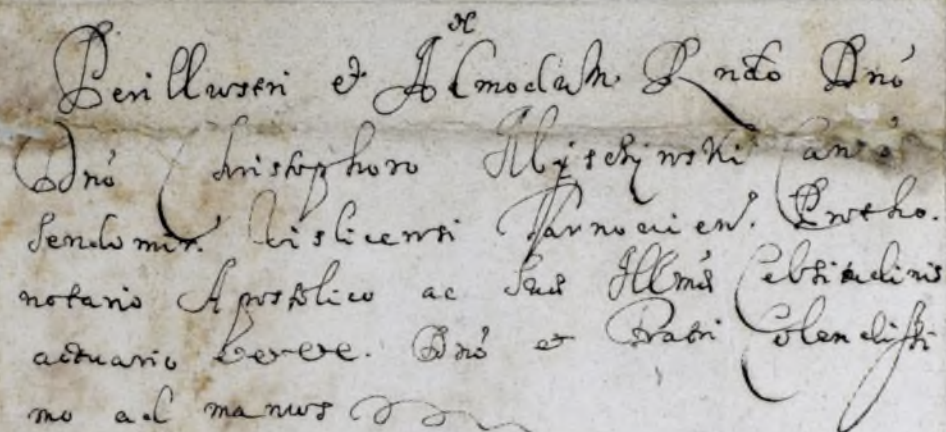 Perillustri et Admodum Rndo Dnó
Dnó Christophoro Canó
Sendomir. Vislicensi Tarnovien. Protho.
notario Apostolico ac Suæ Illmæ Celsitudinis
actuario etc etc. Dnó et Fratri Colendissi
mo ad manus